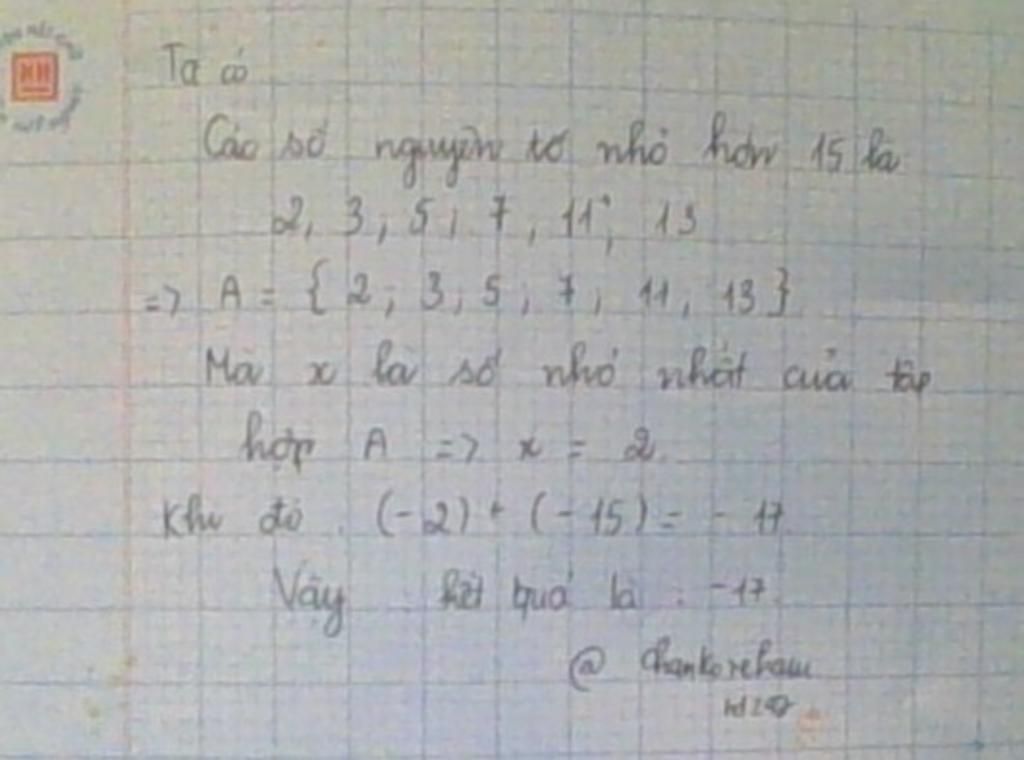 Ta có
Các số nguyên tố nhỏ hơn 15 là
2, 3, 5; 7, 11; 13
=> A = { 2; 3, 5; 7, 11, 13 }
Mà x là số nhỏ nhất của tập
hợp A => x = 2
Khi đó. (-2) + (-15) = - 17
Vậy kết quả là: -17
@